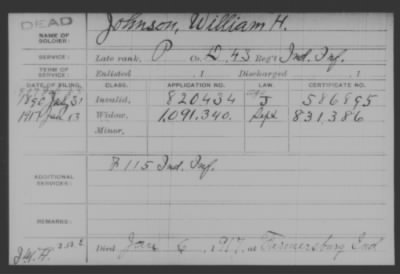 DEAD
NAME OF SOLDIER: Johnson, William H.
SERVICE: Late rank, P Co. D, 43 Reg't Ind. Inf.
TERM OF SERVICE: Enlisted , 1 Discharged , 1
DATE OF FILING. CLASS. APPLICATION NO. LAW. CERTIFICATE NO.
1890 July 31 Invalid, 820434 J 586895
1917 Jan 13 Widow, 1,091,340. Sept 831,386
Minor,
ADDITIONAL SERVICES: F 115 Ind. Inf.
REMARKS:
Died Jan 6, 1917, at Farmersburg Ind